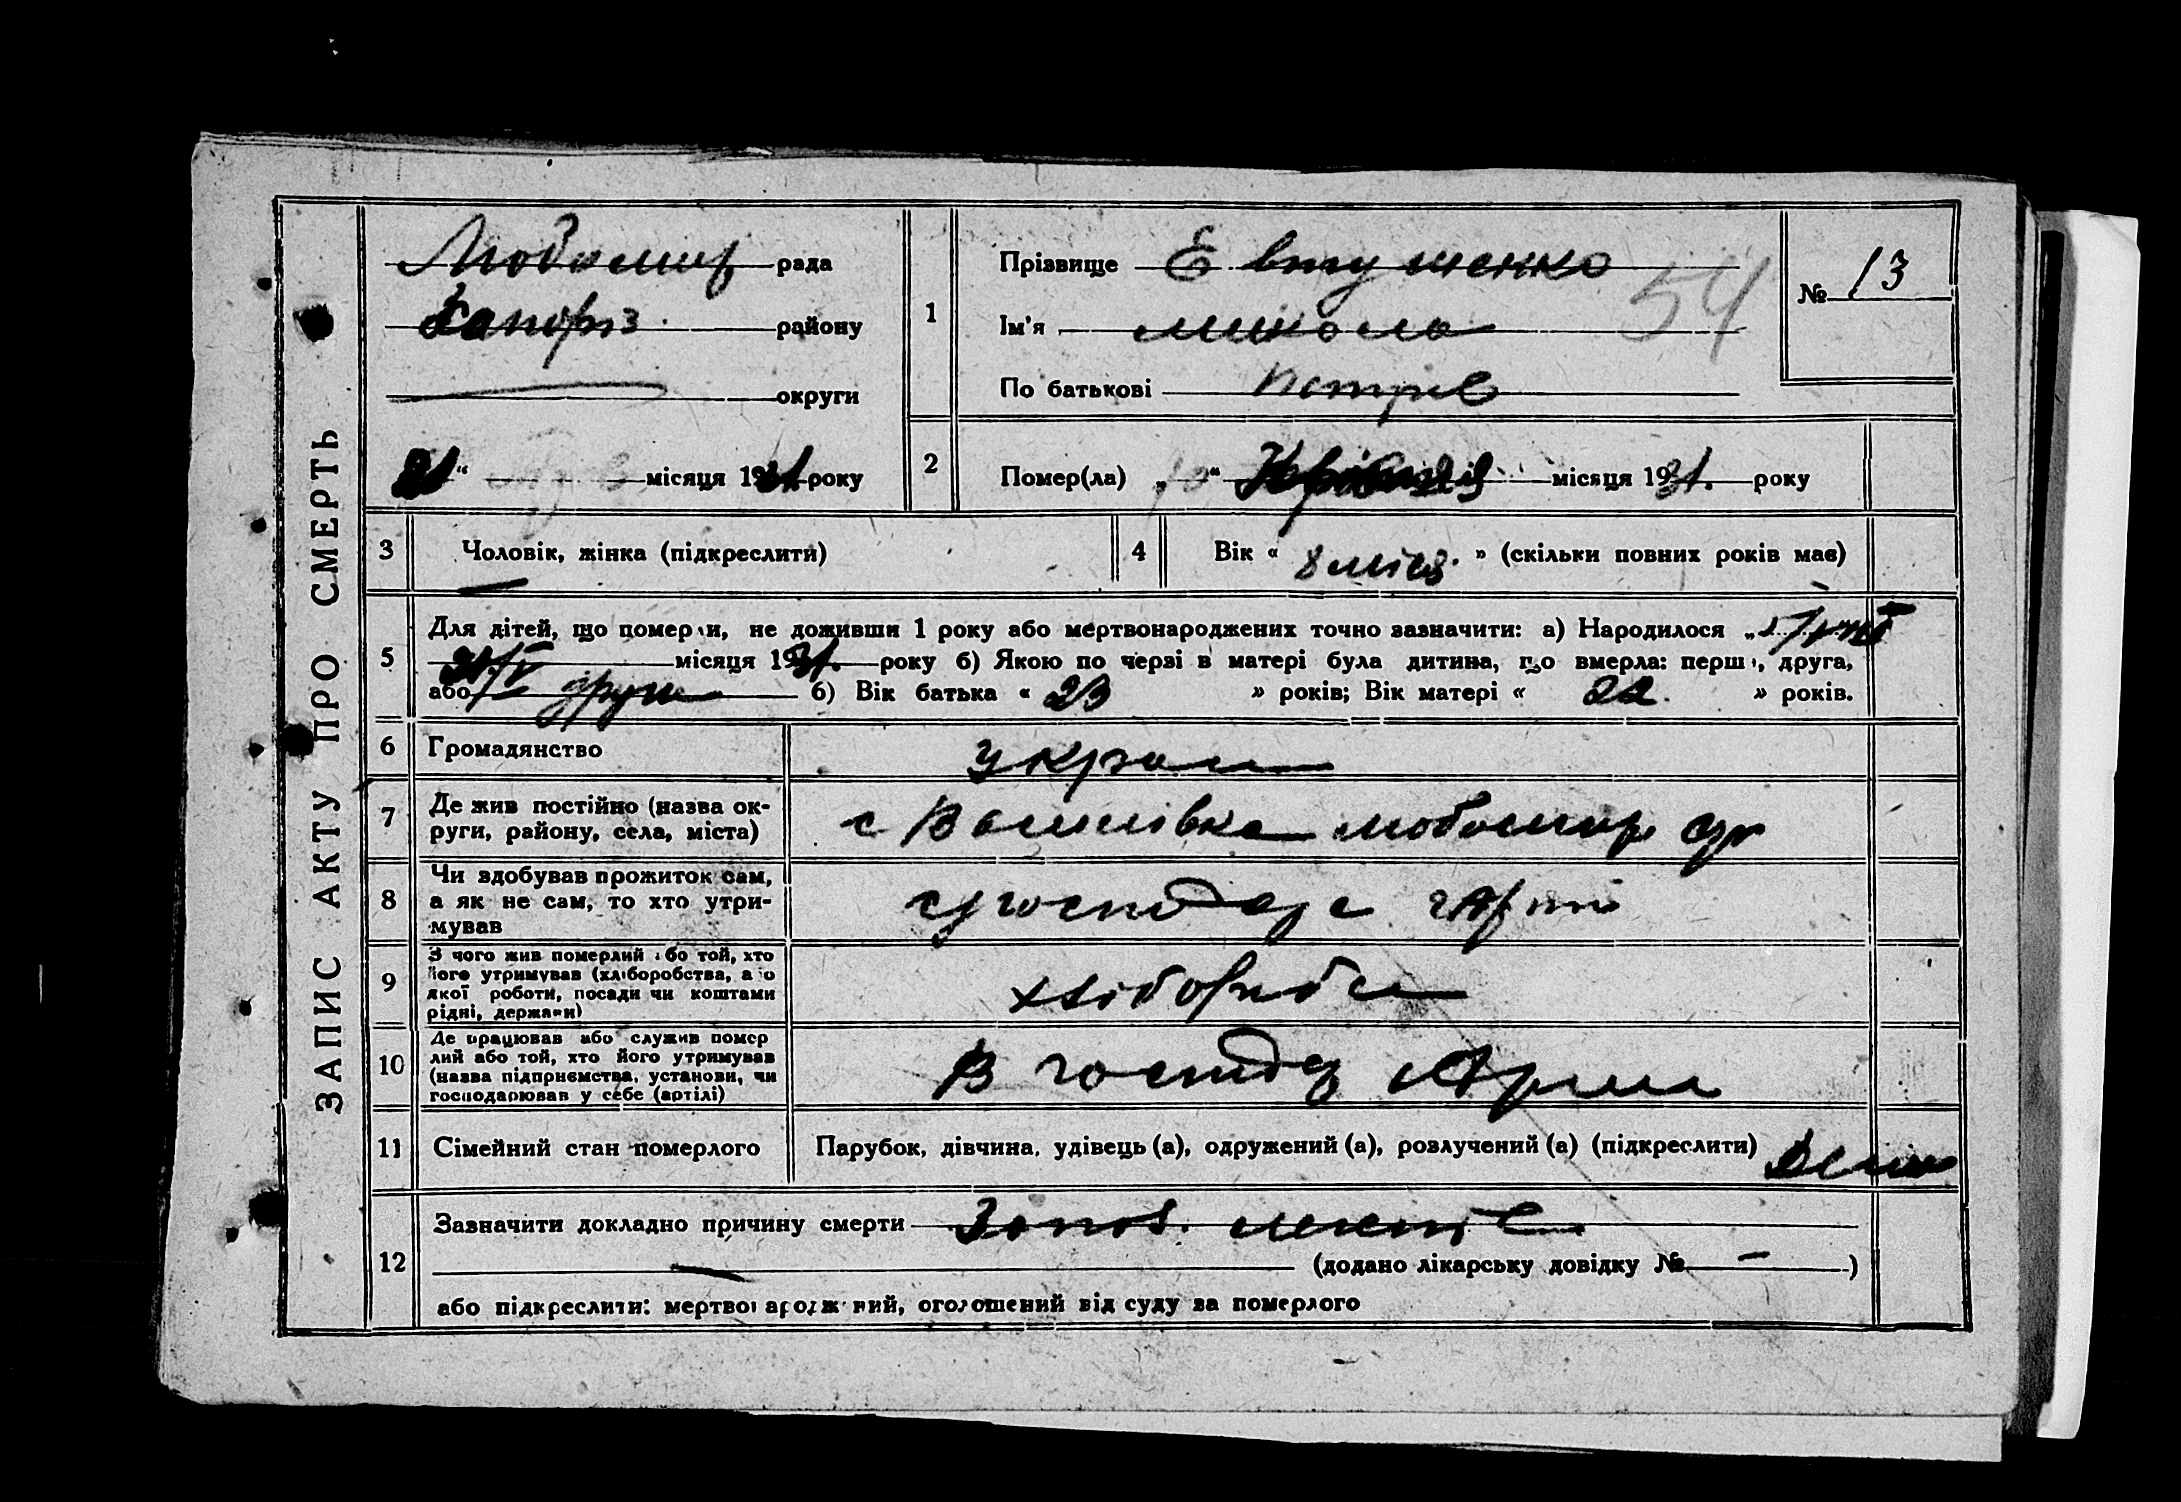 ЗАПИС АКТУ ПРО СМЕРТЬ
Любомир рада
Запоріз. району
округи
21 " місяця 1931 року
1
Прізвище Евтушенко
Ім'я Микола
По батькові Петров
54
№ 13
2
Помер(ла) „ " місяця 1931. року
3 Чоловік, жінка (підкреслити)
4 Вік « 8 міся. » (скільки повних років мав)
5
Для дітей, що померли, не доживши 1 року або мертвонароджених точно зазначити: а) Народилося „
місяця 1931. року б) Якою по черзі в матері була дитина, що вмерла: перша, друга,
або друга б) Вік батька « 23 » років; Вік матері « 22. » років.
6 Громадянство Україн
7
Де жив постійно (назва ок-
руги, району, села, міста)
с Василівка Любомир
8
Чи здобував прожиток сам,
а як не сам, то хто утри-
мував
9
З чого жив померлий або той, хто
його утримував (хліборобства, або
якої роботи, посади чи коштами
рідні, держави)
хліборобс
10
Де працював або служив помер
лий або той, хто його утримував
(назва підприємства, установи, чи
господарював у себе (артілі)
В господ
11 Сімейний стан померлого Парубок, дівчина, удівець (а), одружений (а), розлучений (а) (підкреслити)
12
Зазначити докладно причину смерти Запал. легенів
(додано лікарську довідку № – )
або підкреслити: мертвонароджений, оголошений від суду за померлого